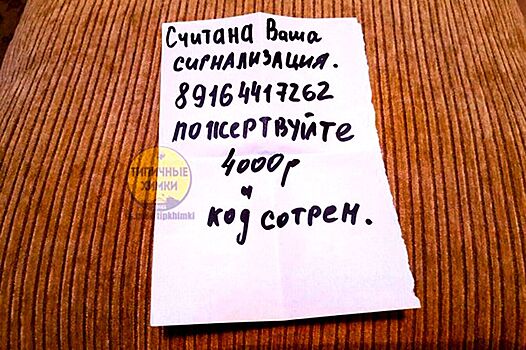 Считана Ваша
сигнализация.
89164417262
пожертвуйте
4000р
и
код сотрем.
ТИПИЧНЫЕ
ХИМКИ